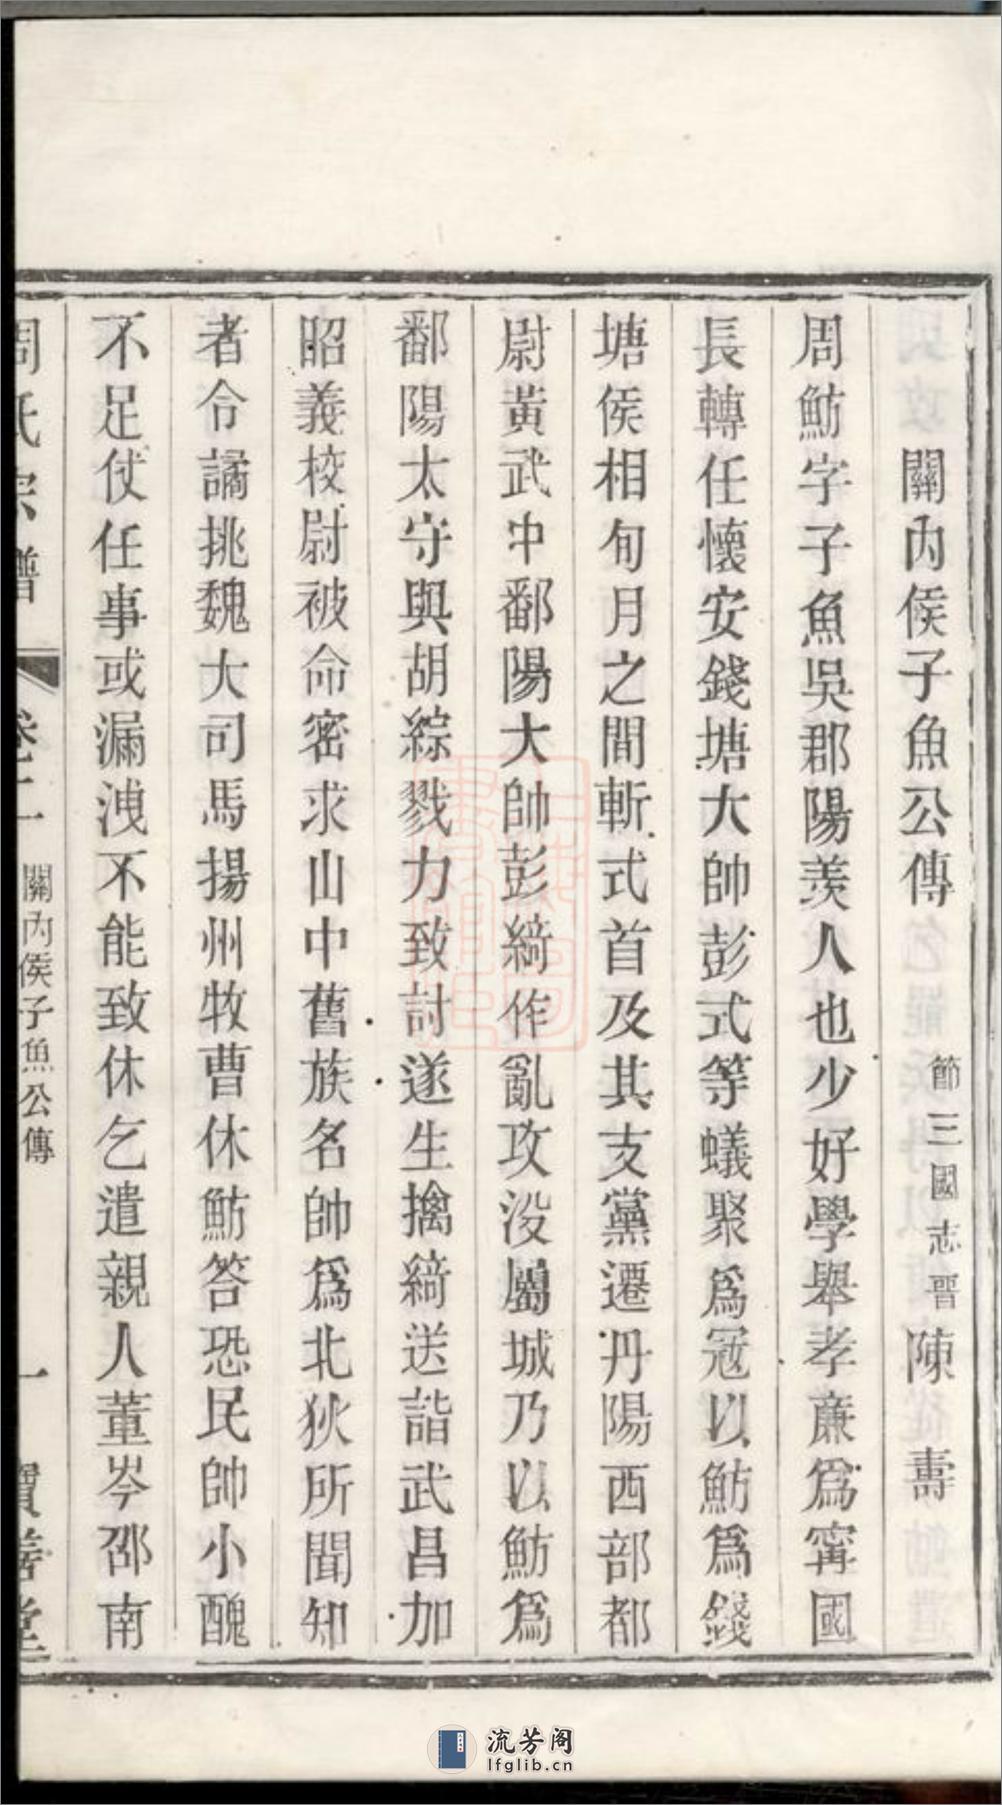 關內侯子魚公傳 節三國志晉陳 壽
周魴字子魚吳郡陽羨人也少好學舉孝廉爲寗國
長轉任懷安錢塘大帥彭式等蟻聚爲冦以魴爲錢
塘侯相旬月之間斬式首及其支黨遷丹陽西部都
尉黃武中鄱陽大帥彭綺作亂攻没屬城乃以魴爲
鄱陽太守與胡綜戮力致討遂生擒綺送詣武昌加
昭義校尉被命密求山中舊族名帥爲北狄所聞知
者令譎挑魏大司馬揚州牧曹休魴答恐民帥小醜
不足仗任事或漏洩不能致休乞遣親人董岑邵南
周氏宗譜 卷二 關內侯子魚公傳 一 寶善堂
流芳阁
lfglib.cn